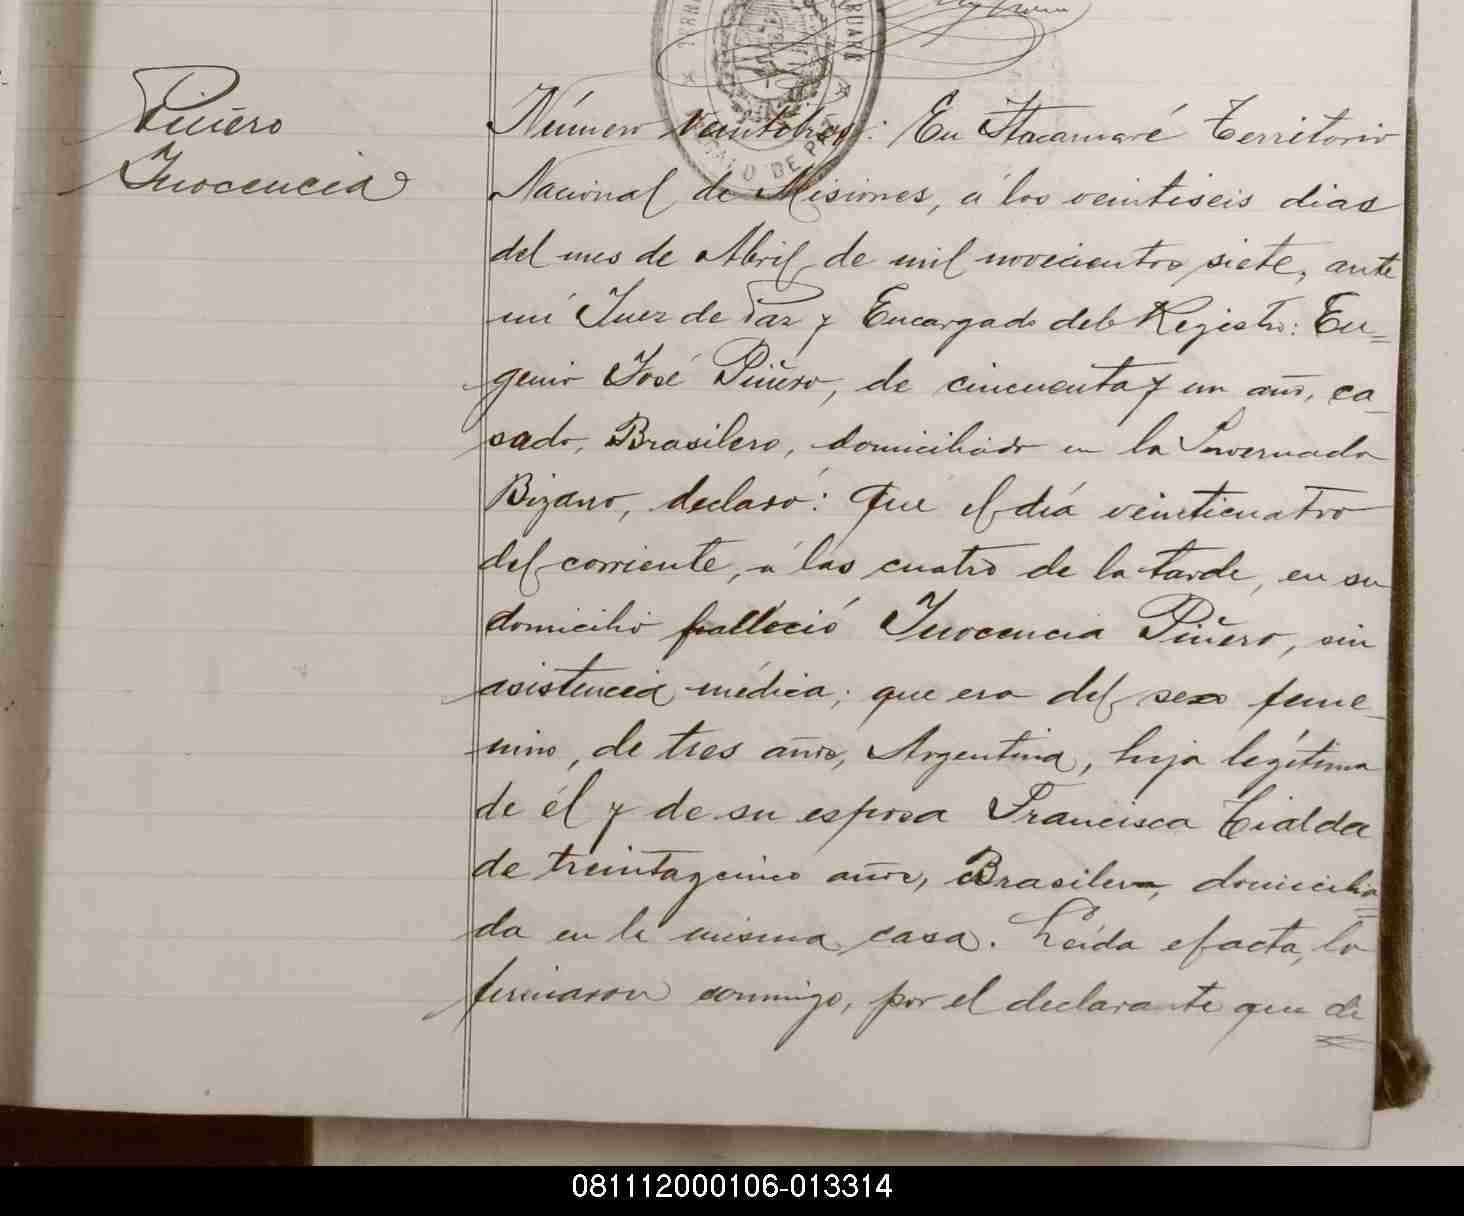 Piñero
Inocencia
Número veintitres: En Itacaruaré Territorio
Nacional de Misiones, á los veintiseis dias
del mes de Abril de mil novecientos siete, ante
mí Juez de Paz y Encargado del Registro: Eu=
genio José Piñero, de cincuenta y un año, ca-
sado, Brasilero, domiciliado en la
declaró: Que el día veinticuatro
del corriente, á las cuatro de la tarde, en su
domicilio falleció Inocencia Piñero, sin
asistencia médica; que era del sexo feme-
nino, de tres años, Argentina, hija legítima
de él y de su esposa Francisca
de treintaycinco años, Brasilera, domicilia=
da en la misma casa. Leída el acta, la
firmaron conmigo, por el declarante que di
081112000106-013314